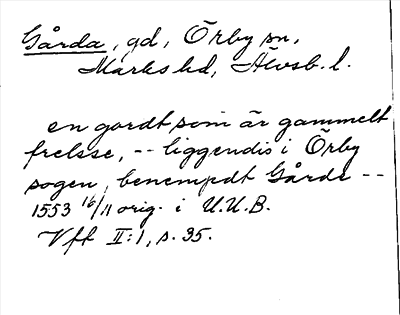 Gårda, gd, Örby sn,
Marks hd, Älvsb. l.
en gardt som är gammelt
frelsse, -- liggendis i Örby
sogen, benempdt Gårde --
1553 16/11 orig. i U.U.B.
Vff II:1, s. 35.